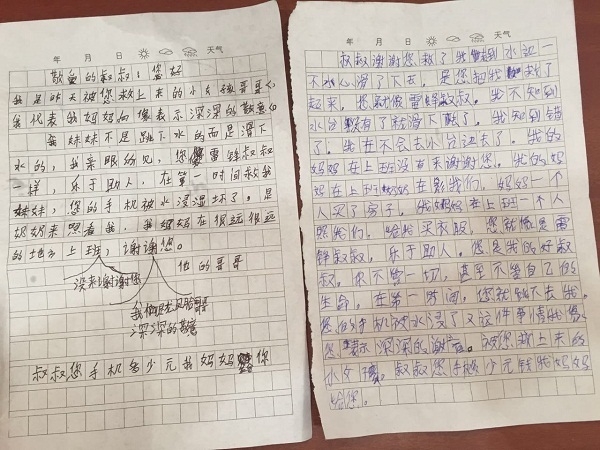 年 月 日 天气
敬爱的叔叔：您好
我是昨天被您救上来的小女孩哥哥
我代表我妈妈向您表示深深的敬意
我妹妹不是跳下水的而是滑下
水的，我亲眼的见，您像雷锋叔叔
一样，乐于助人，在第一时间救我
妹妹，您的手机被水浸湿坏了，是
奶奶来照看我，我妈妈在很远很远
的地方上班，谢谢您。
他的哥哥
深表谢谢您
深深的敬意
叔叔您手机多少元我妈妈给你
年 月 日 天气
叔叔谢谢您救了我，我到水边一
不小心滑了下去，是您把我救了
起来，您就像雷锋叔叔。我不知到
水台就有了就滑下去了。我知到错
了，我在不会去水台边去了。我的
妈妈在上班没有来谢谢您。我的妈
妈在上班奶奶在影我们。妈妈一个
人买了房子。我妈妈在上班一个人
照我们，给我买衣服，您就像是雷
锋叔叔，乐于助人。您是我的好叔
叔。你不管一切，甚至不管自己的
生命，在第一时间，您就跳下去救我。
您的手机被水浸了又这件事情我像
您表示深深的谢意。被您救上来的
小女孩。叔叔您手机多少元钱我妈妈
给您。